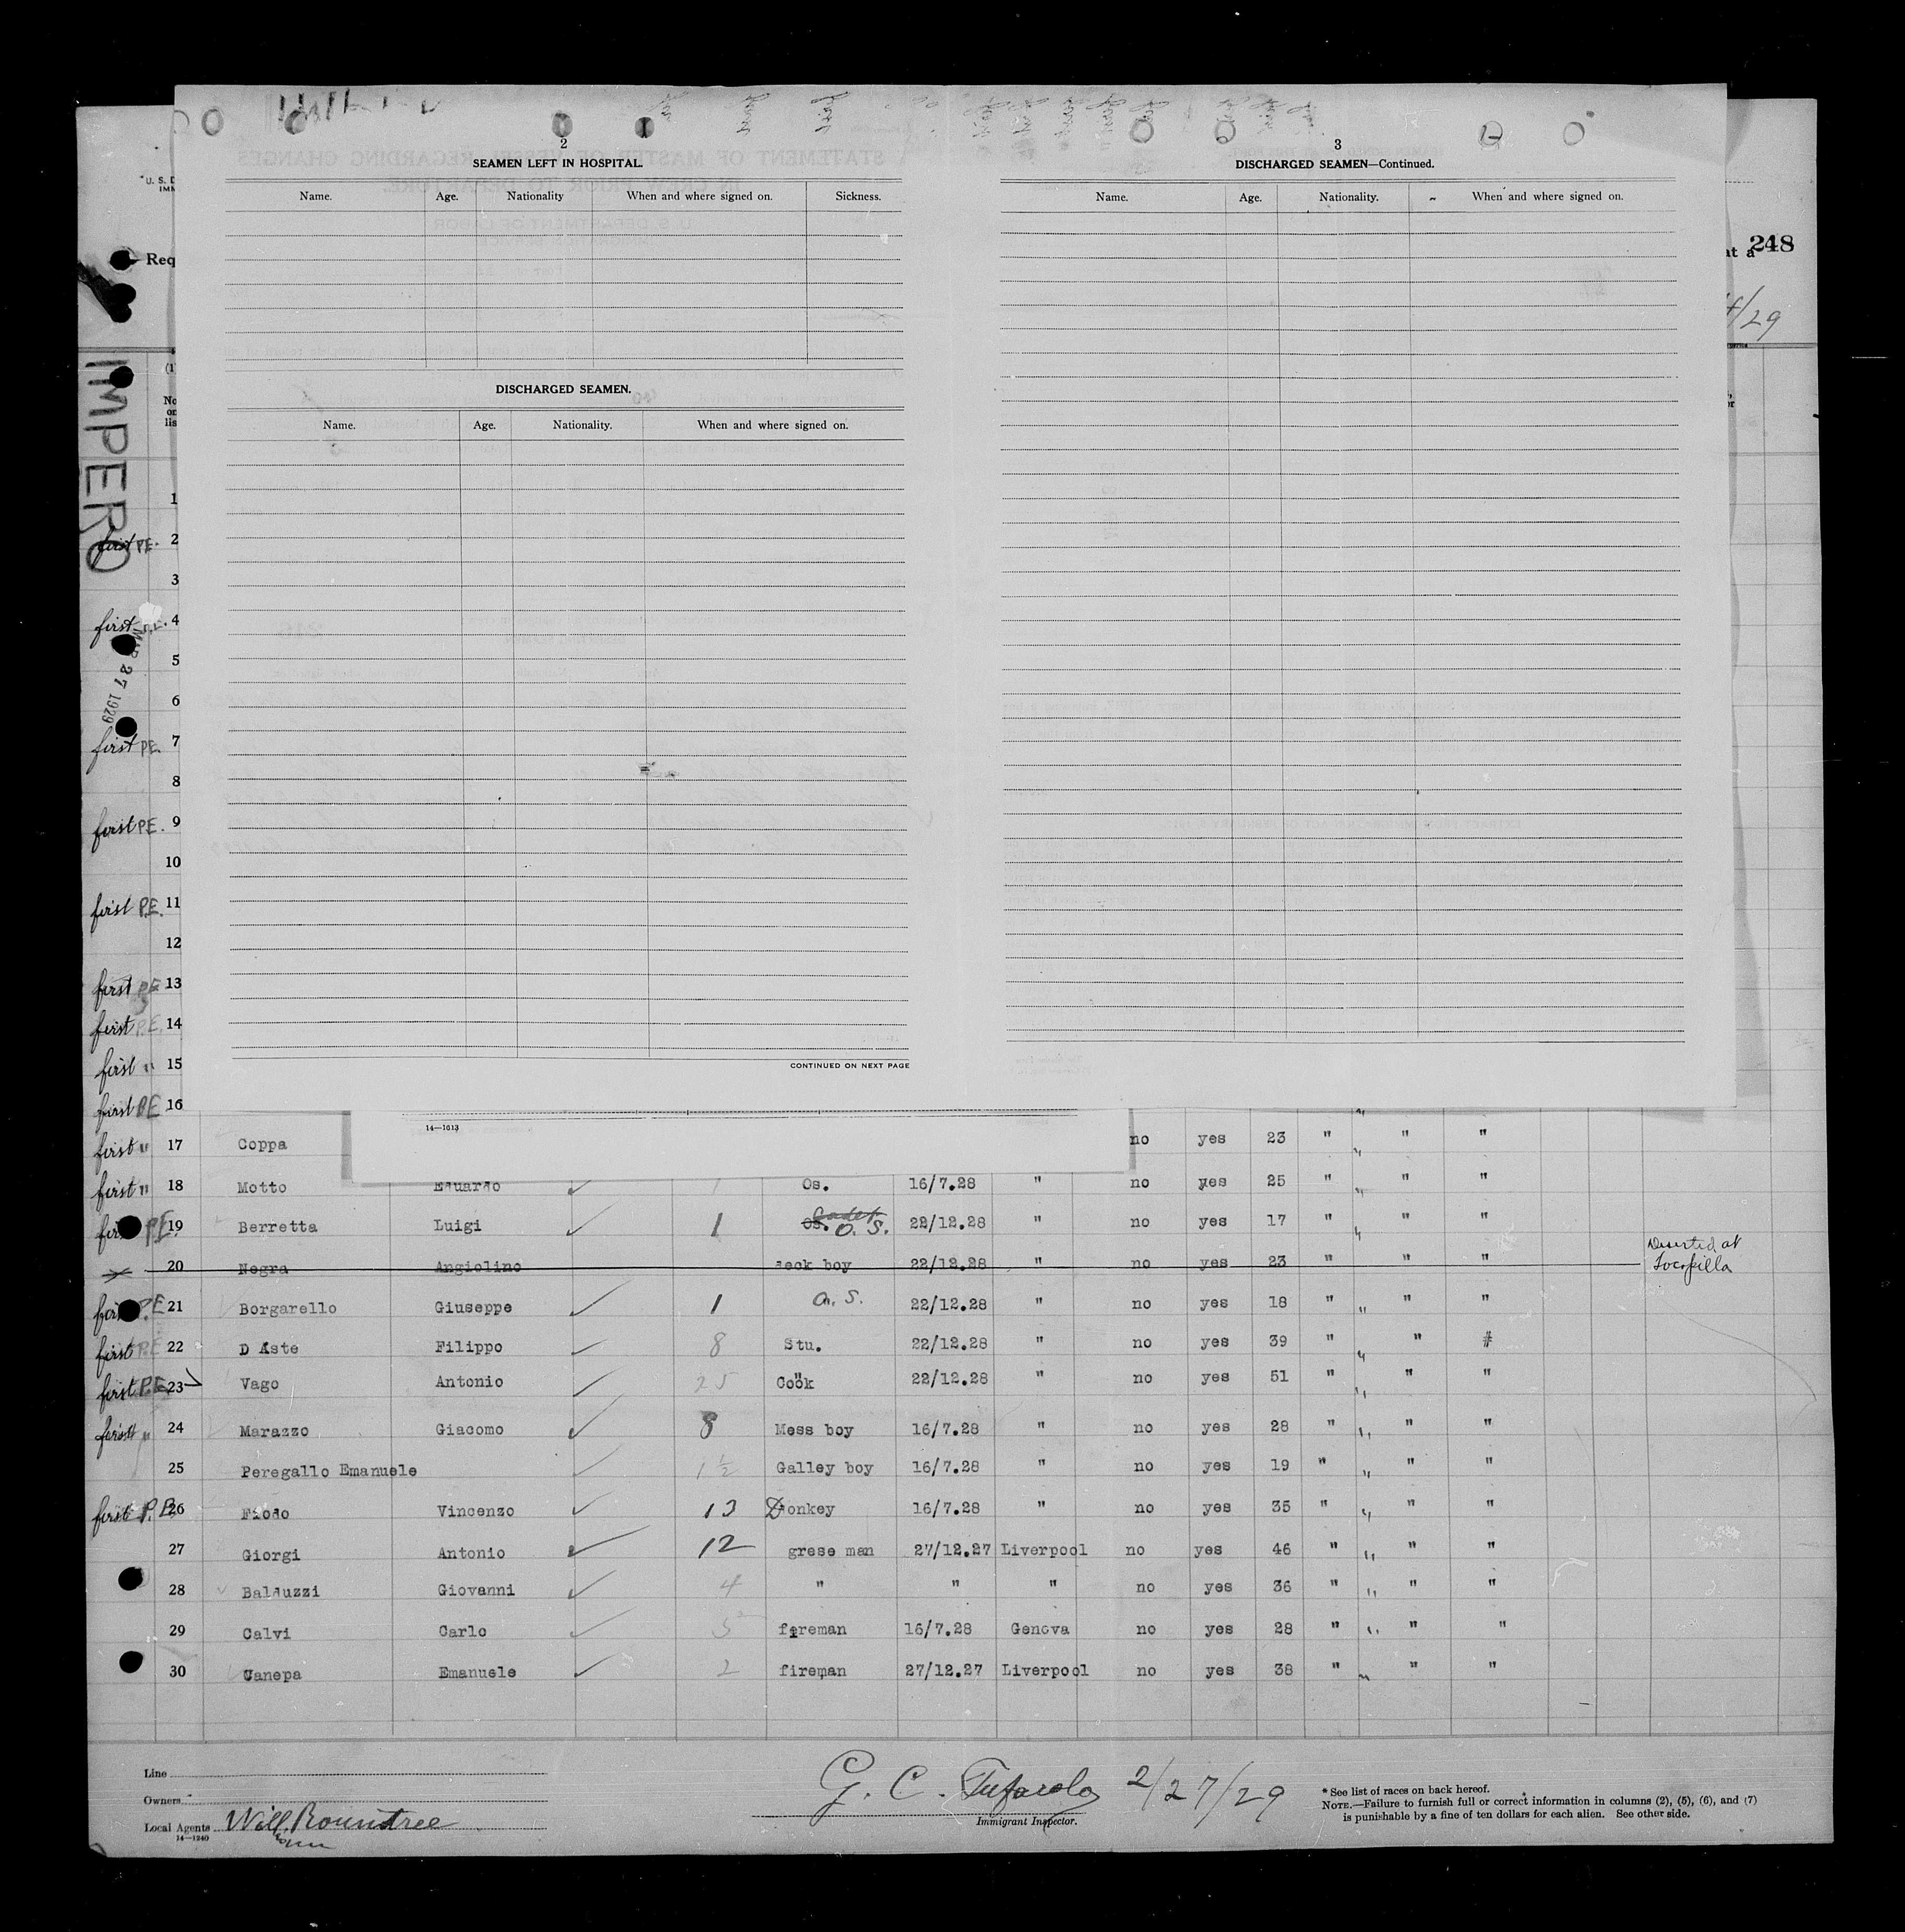 2
SEAMEN LEFT IN HOSPITAL.
Name. Age. Nationality When and where signed on. Sickness.
DISCHARGED SEAMEN.
Name. Age. Nationality. When and where signed on.
CONTINUED ON NEXT PAGE
3
DISCHARGED SEAMEN—Continued.
Name. Age. Nationality. When and where signed on.
14—1613
U. S. D
IMM
Req
at a 248
4/29
IMPERO
No
on
lis
1
first P.E. 2
3
first P.E. 4
MAR 27 1929
5
6
first P.E. 7
8
first P.E. 9
10
first P.E. 11
12
first P.E. 13
first P.E. 14
first " 15
first P.E. 16
first " 17 Coppa no yes 23 " " " "
first " 18 Motto Eduardo Os. 16/7.28 " no yes 25 " " " "
P.E. 19 Berretta Luigi 1 Os. Cadet O. S. 22/12.28 " no yes 17 " " " "
20 Negra Angiolino deck boy 22/12.28 " no yes 23 " " " Deserted at
Tocopilla
P.E. 21 Borgarello Giuseppe 1 O. S. 22/12.28 " no yes 18 " " " "
first P.E. 22 D Aste Filippo 8 Stu. 22/12.28 " no yes 39 " " " #
first P.E. 23 Vago Antonio 25 Cook 22/12.28 " no yes 51 " " " "
first " 24 Marazzo Giacomo 8 Mess boy 16/7.28 " no yes 28 " " " "
25 Peregallo Emanuele 1½ Galley boy 16/7.28 " no yes 19 " " " "
first P.E. 26 Vincenzo 13 Donkey 16/7.28 " no yes 35 " " " "
27 Giorgi Antonio 12 grese man 27/12.27 Liverpool no yes 46 " " " "
28 Balduzzi Giovanni 4 " " " no yes 36 " " " "
29 Calvi Carlo 5 fireman 16/7.28 Genova no yes 28 " " " "
30 Canepa Emanuele 2 fireman 27/12.27 Liverpool no yes 38 " " " "
Line
Owners
Local Agents Will. Rountree
14—1240
G. C. 2/27/29
Immigrant Inspector.
* See list of races on back hereof.
NOTE.—Failure to furnish full or correct information in columns (2), (5), (6), and (7)
is punishable by a fine of ten dollars for each alien. See other side.